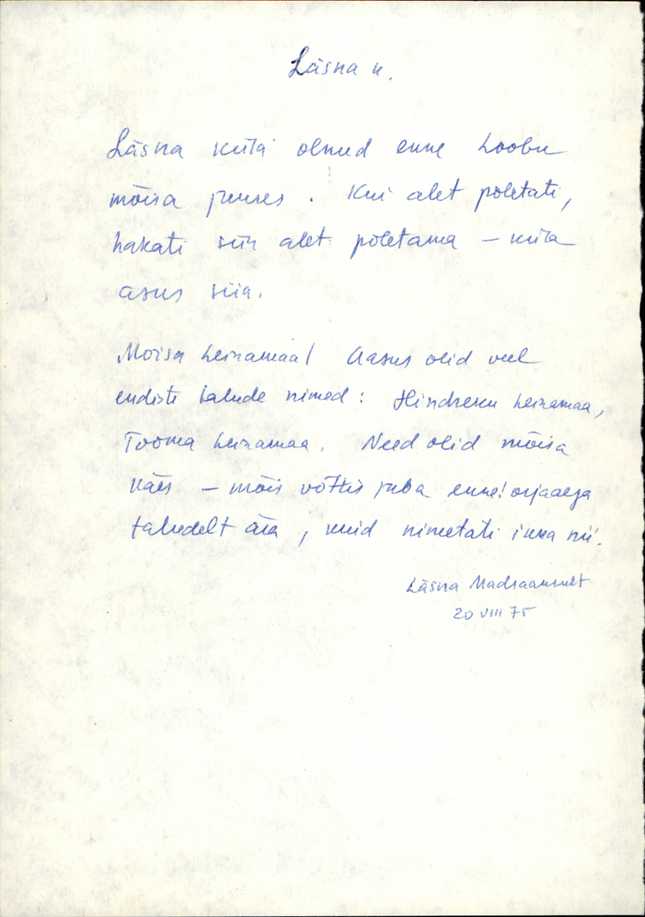 Läsna k.
Läsna küla olnud enne Loobu
mõisa juures. Kui alet põletati,
hakati siin alet põletama – küla
asus siia.
Moisa heinamaal Aasus olid veel
endiste talude nimed: Hindreku heinamaa,
Tooma heinamaa. Need olid mõisa
käes – mõis võttis juba enne! orjaaega
taludelt ära, kuid nimetati ikka nii.
Läsna
20 VIII 75